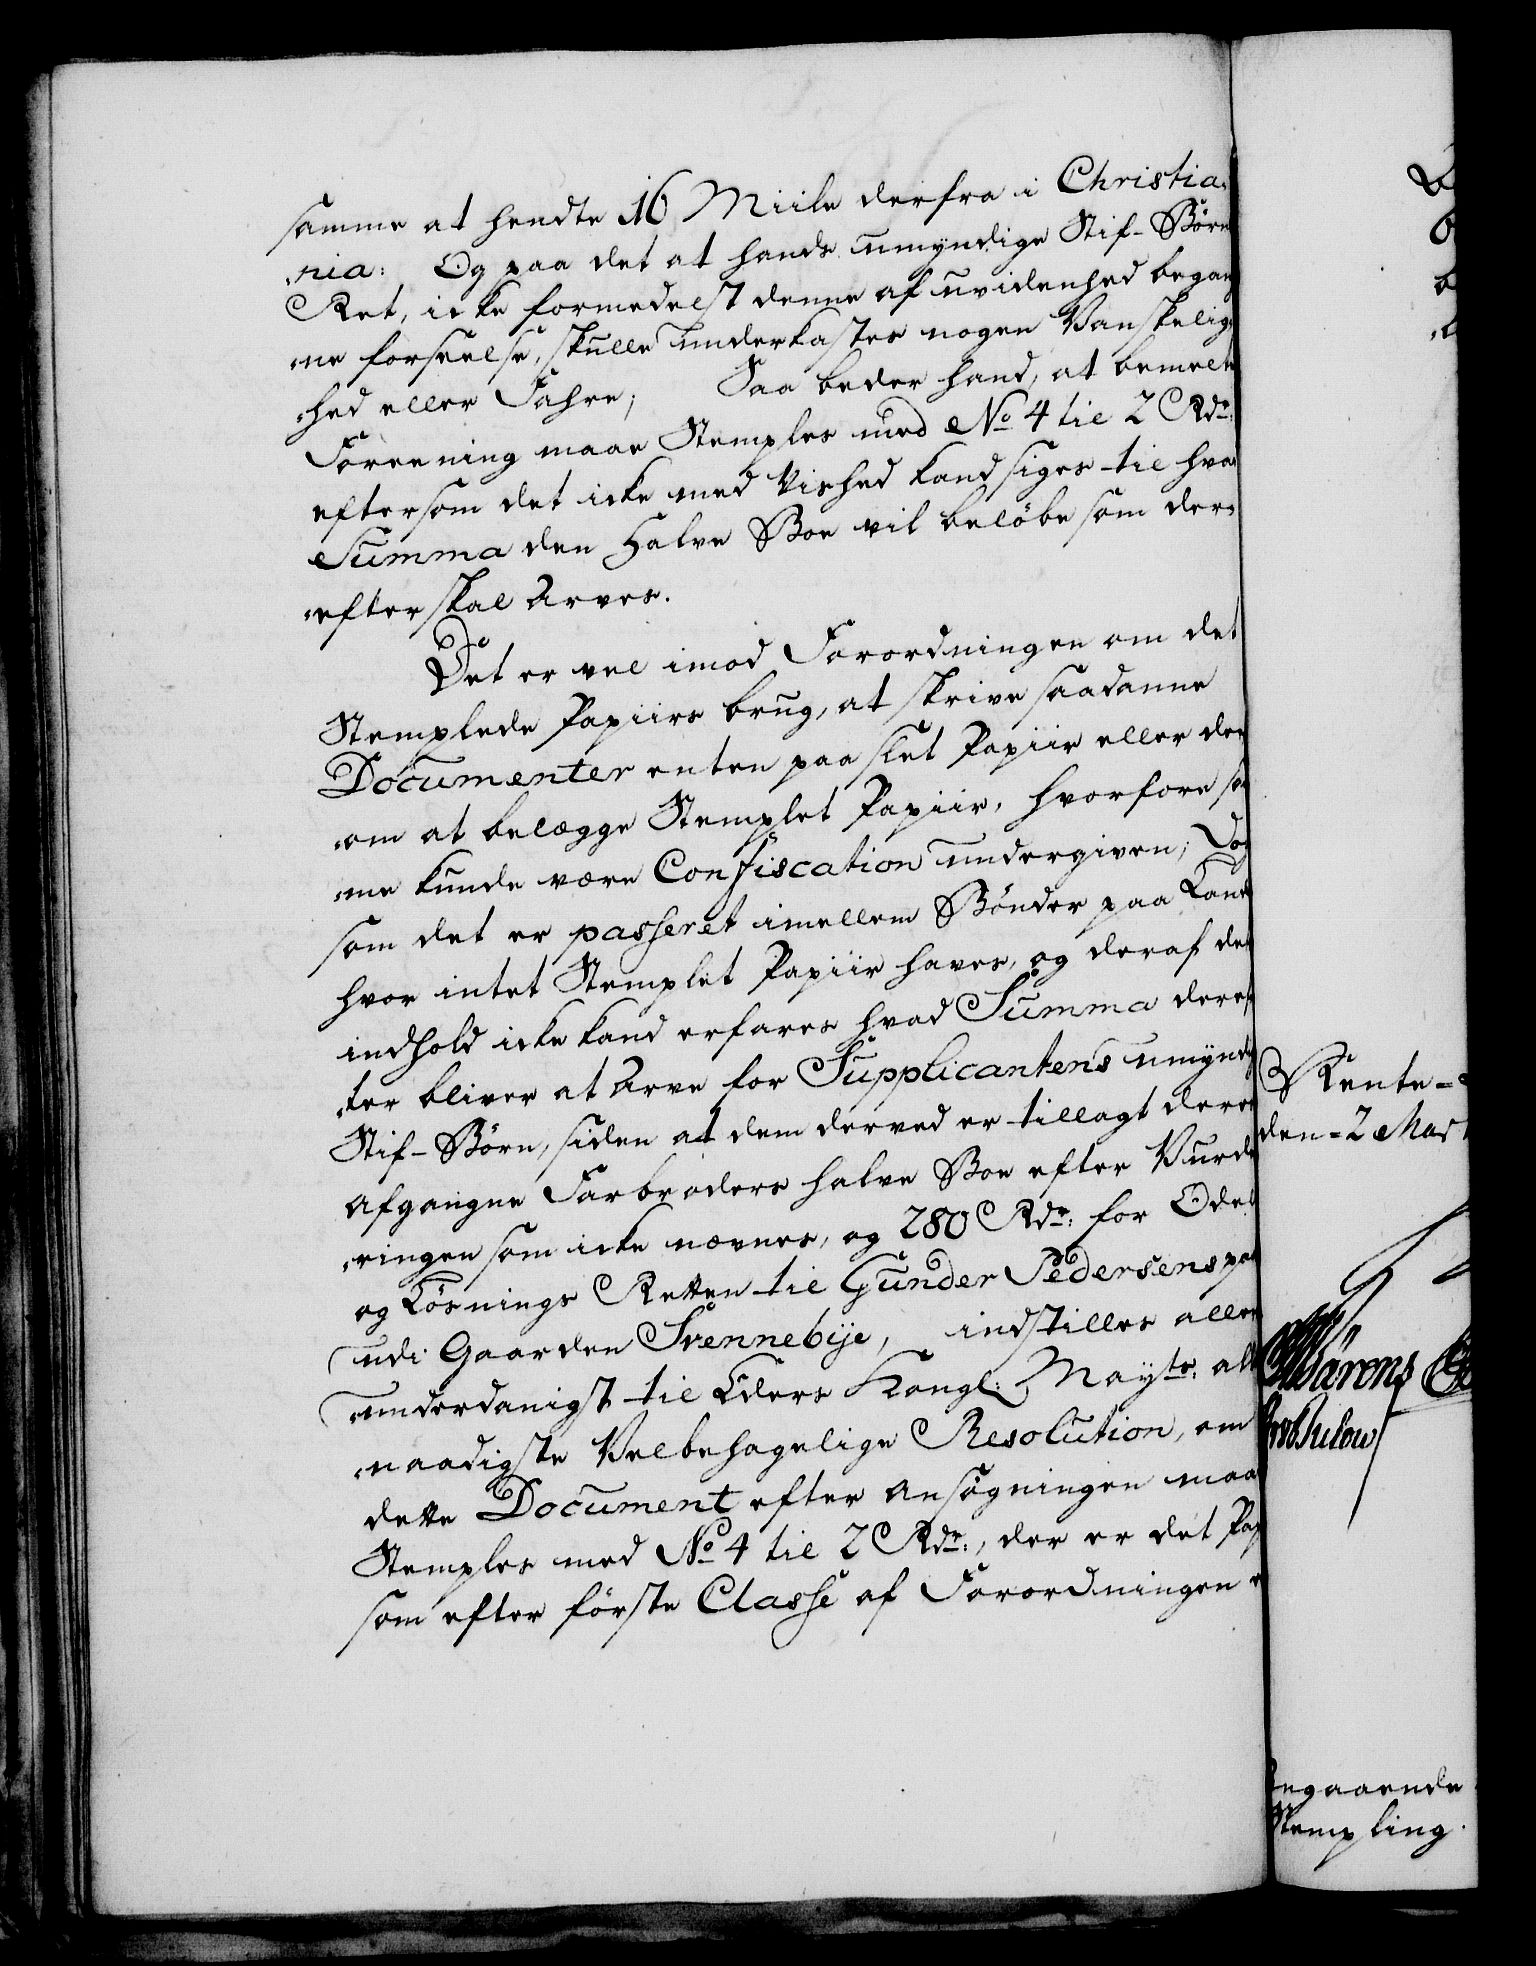 samme at hendte 16 Miile derfra i Christia„
„nia: Og paa det at hands umyndige Stif-Børn
Ret, icke formedelst denne af uvidenhed began
„ne forseelse, skulle underkastes nogen Vanskelig„
„hed eller Fahre; Saa beder hand, at bemelte
Foreening maae Stemples med No 4 til 2 Rdr:
eftersom det icke med Vished kand siges til hvad
Summa den halve Boe vil beløbe som der„
„efter skal Arves.
Det er vel imod Forordningen om det
Stemplede Papiirs brug, at skrive saadanne
Documenter enten paa slet Papiir eller der
„om at belægge Stemplet Papiir, hvorfore sa
„me kunde være Confiscation undergiven; Dog
som det er passeret imellem Bønder paa Land
hvor intet Stemplet Papiir haves, og deraf dets
indhold icke kand erfares hvad Summa deref
„ter bliver at Arve for Supplicantens umyndi
Stif-Børn, siden at dem derved er tillagt deres
Afgangne Farbroders halve Boe efter Vurde
„ringen som icke nævnes, og 280 Rdr: for Odel
og Løsnings Retten til Gunder Pedersens pa
udi Gaarden Svennebije, indstilles aller
„underdanigst til Eders Kongl: Mayts: all
„naadigste Velbehagelige Resolution, om
dette Document efter ansøgningen maa
Stemples med No 4 til 2 Rdr:, der er det Pap
som efter første Classe af Forordningen e
Rente-
den 2 Mar
Bärens
Bulow
ngaaende
Stempling.